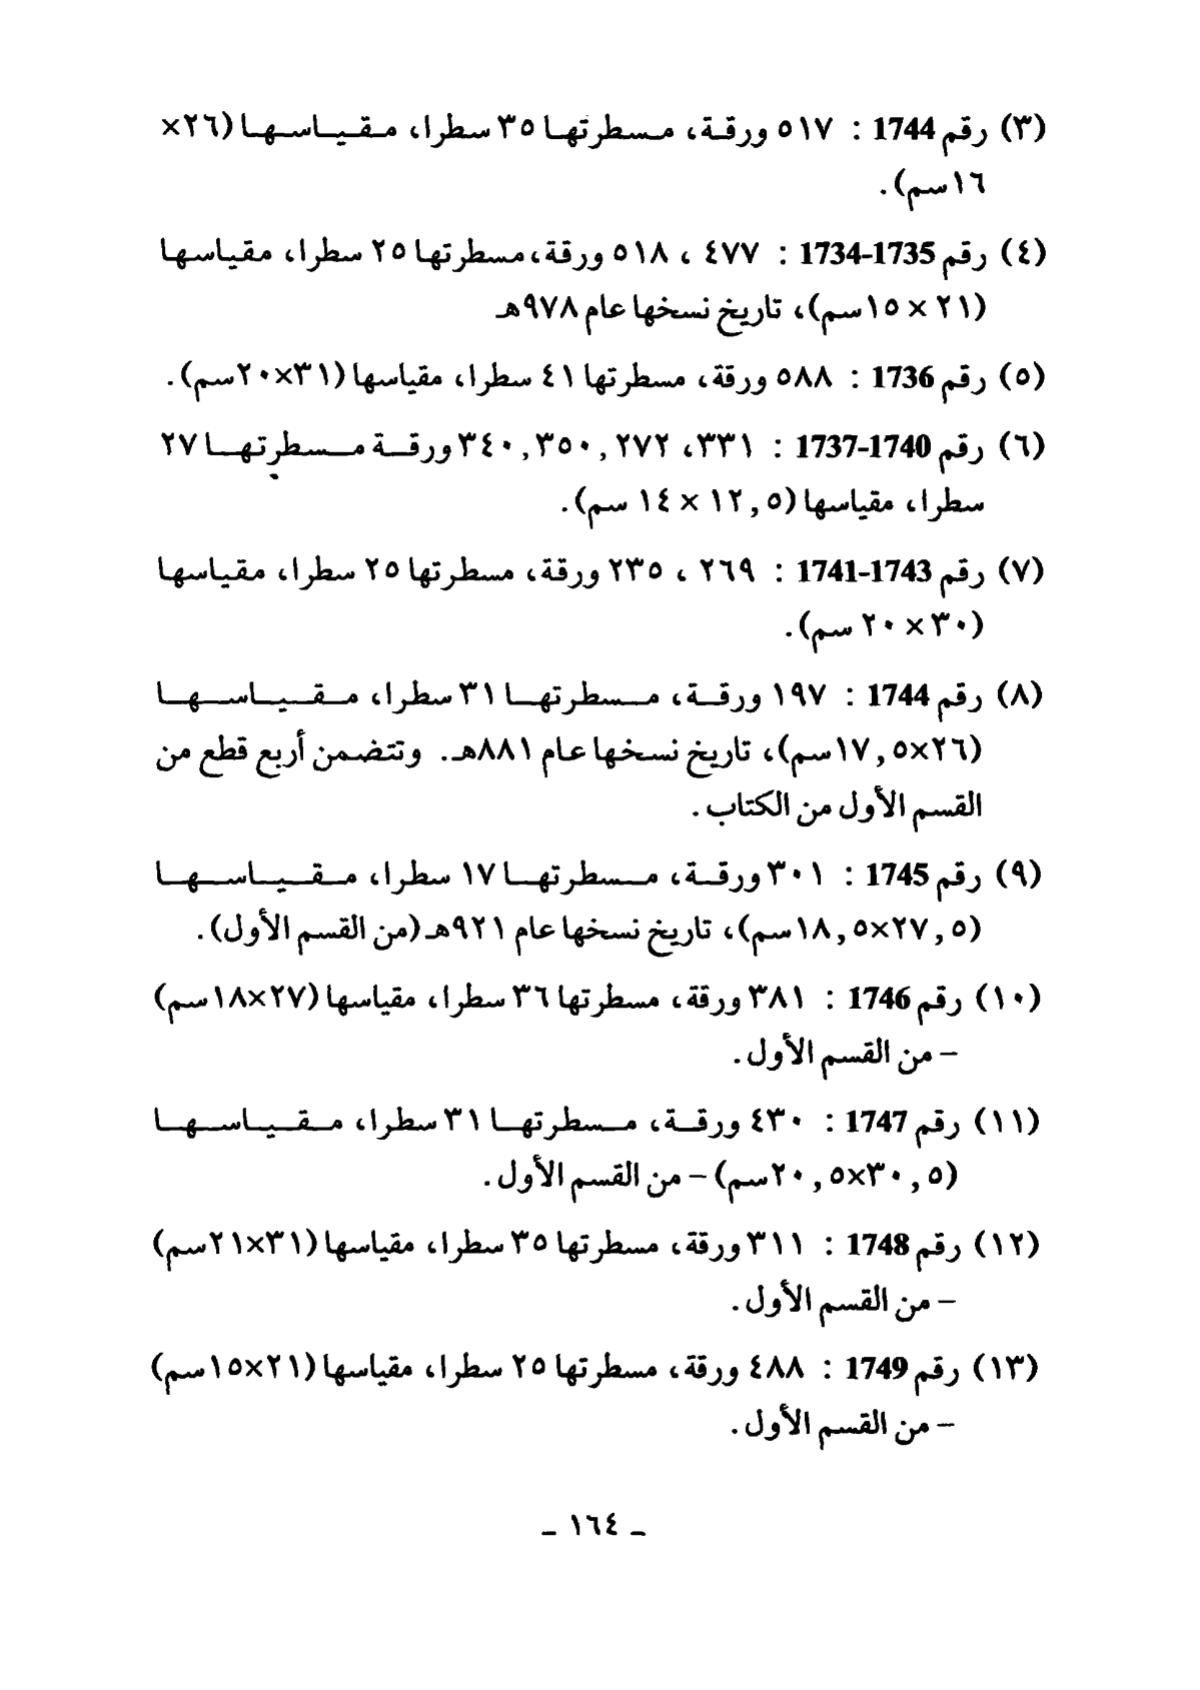 (٣) رقم 1744 : ٥١٧ ورقة، مسطرتها ٣٥ سطرا، مقياسها (٢٦×
١٦سم).
(٤) رقم 1735-1734 : ٤٧٧ ، ٥١٨ ورقة، مسطرتها ٢٥ سطرا، مقياسها
(٢١ × ١٥سم)، تاريخ نسخها عام ٩٧٨هـ
(٥) رقم 1736 : ٥٨٨ ورقة، مسطرتها ٤١ سطرا، مقياسها (٣١×٢٠سم).
(٦) رقم 1740-1737 : ٣٣١، ٢٧٢ ,٣٥٠ ,٣٤٠ ورقة مسطرتها ٢٧
سطرا، مقياسها (١٢,٥ × ١٤ سم).
(٧) رقم 1743-1741 : ٢٦٩ ، ٢٣٥ ورقة، مسطرتها ٢٥ سطرا، مقياسها
(٣٠ × ٢٠ سم).
(٨) رقم 1744 : ١٩٧ ورقة، مسطرتها ٣١ سطرا، مقياسها
(٢٦×١٧,٥سم)، تاريخ نسخها عام ٨٨١هـ. وتتضمن أربع قطع من
القسم الأول من الكتاب.
(٩) رقم 1745 : ٣٠١ ورقة، مسطرتها ١٧ سطرا، مقياسها
(٢٧,٥×١٨,٥سم)، تاريخ نسخها عام ٩٢١هـ (من القسم الأول).
(١٠) رقم 1746 : ٣٨١ ورقة، مسطرتها ٣٦ سطرا، مقياسها (٢٧×١٨سم)
– من القسم الأول.
(١١) رقم 1747 : ٤٣٠ ورقة، مسطرتها ٣١ سطرا، مقياسها
(٣٠,٥×٢٠,٥سم) – من القسم الأول.
(١٢) رقم 1748 : ٣١١ ورقة، مسطرتها ٣٥ سطرا، مقياسها (٣١×٢١سم)
– من القسم الأول.
(١٣) رقم 1749 : ٤٨٨ ورقة، مسطرتها ٢٥ سطرا، مقياسها (٢١×١٥سم)
– من القسم الأول.
ـ ١٦٤ ـ